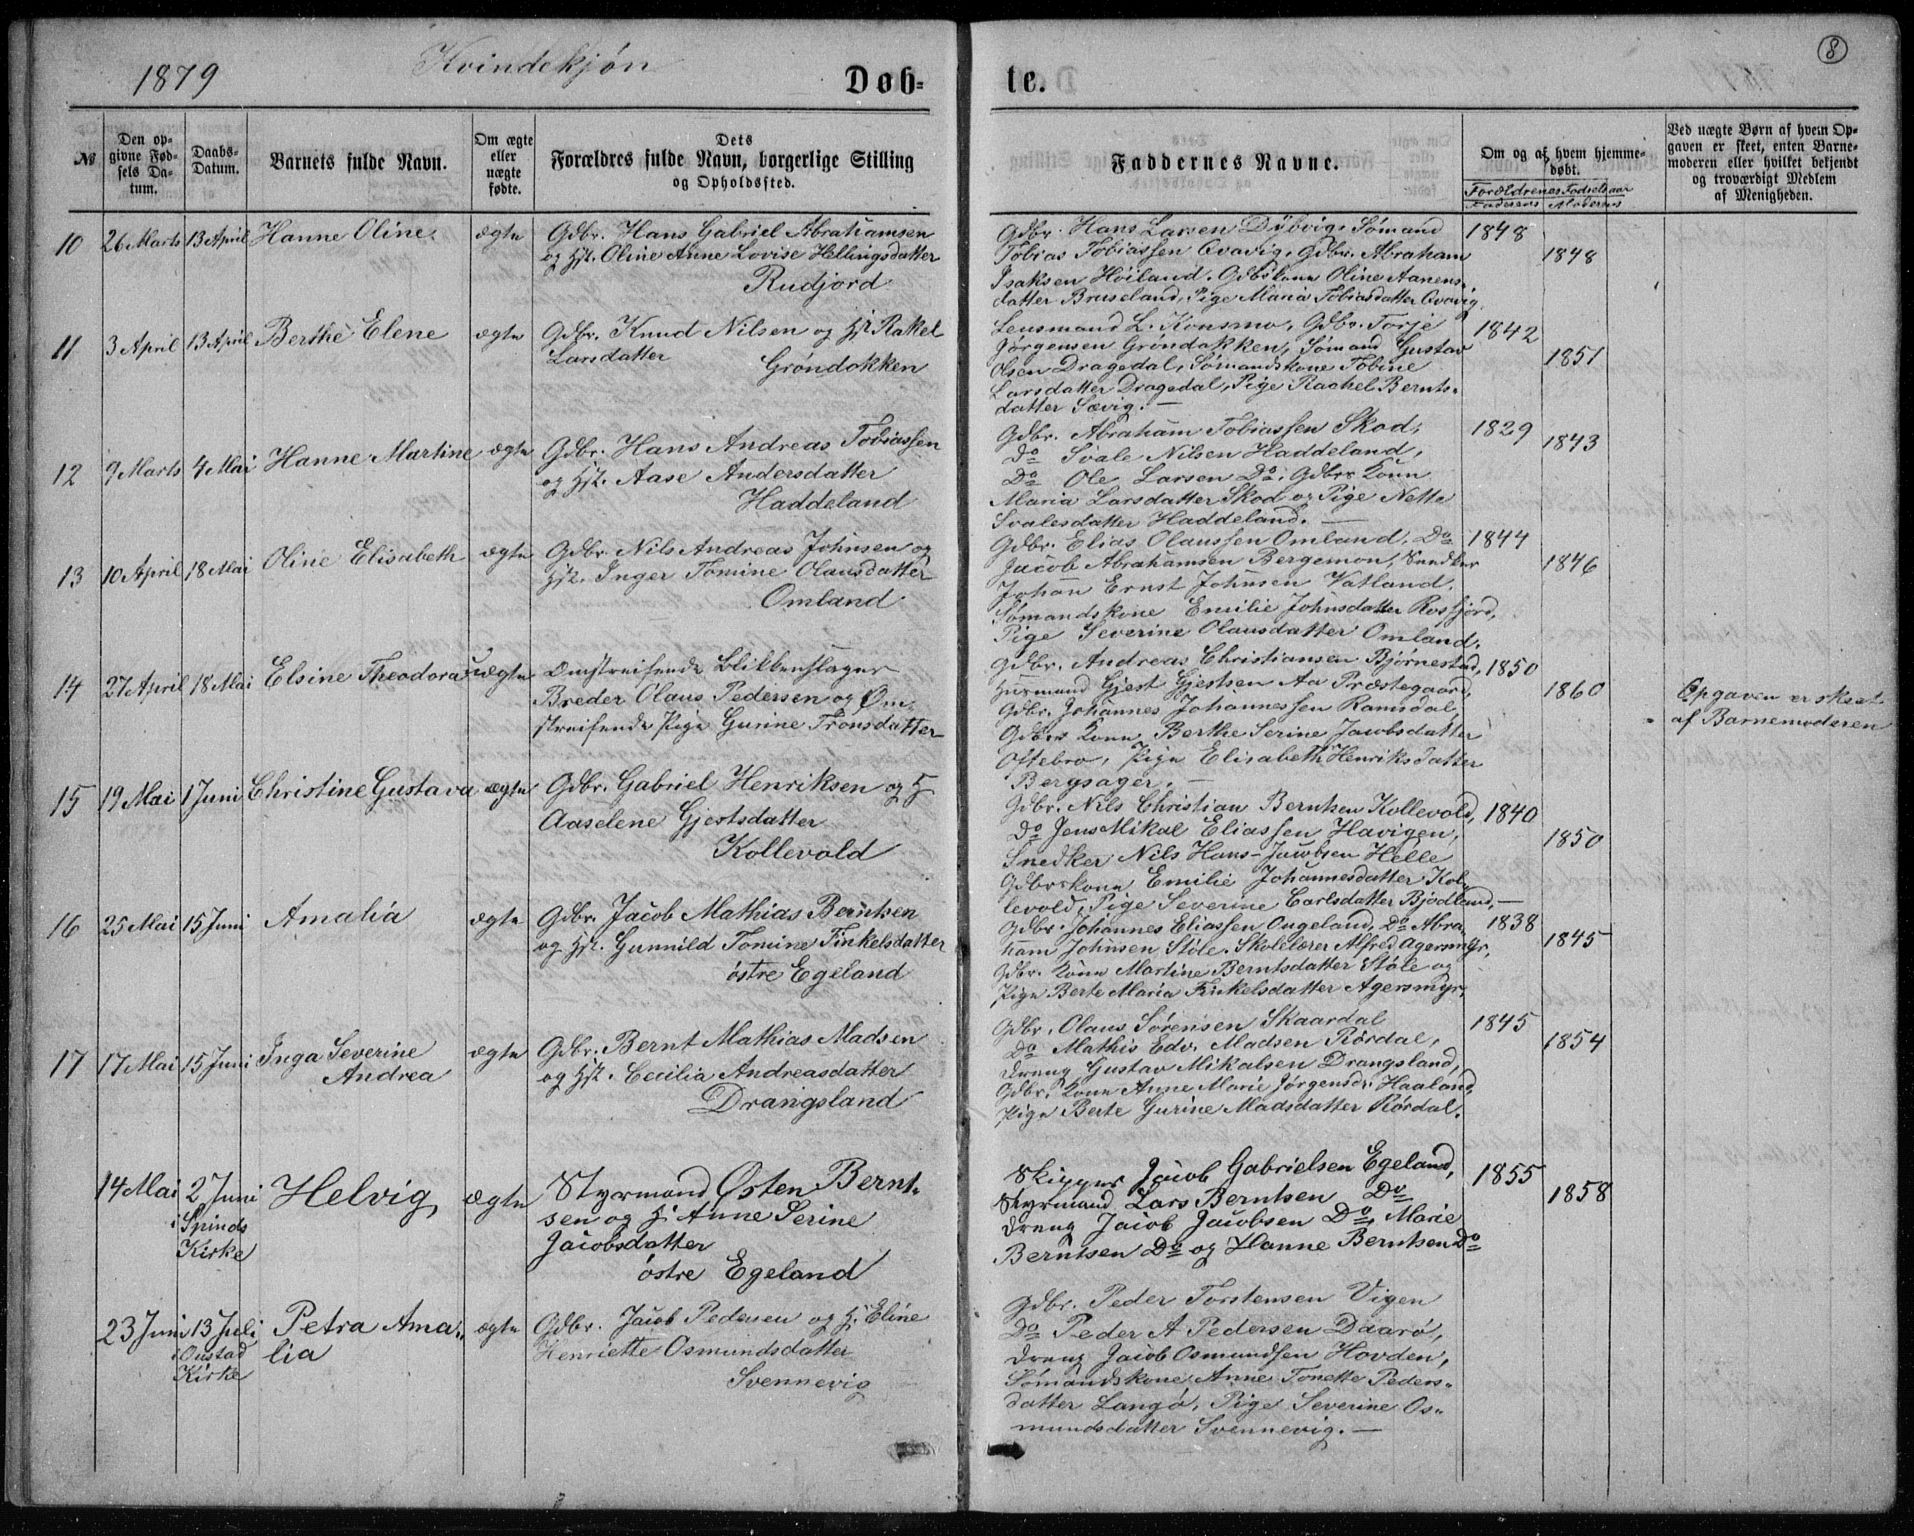 1879
Kvindekjøn
Døb=
te.
8
№
Den op-
givne Fød-
sels Da-
tum.
Daabs-
Datum.
Barnets fulde Navn.
Om ægte
eller
uægte
fødte.
Dets
Forældres fulde Navn, borgerlige Stilling
og Opholdssted.
Faddernes Navne.
Om og af hvem hjemme-
døbt.
Forældrenes Fødselsaar
Faderens Moderens
Ved uægte Børn af hvem Op-
gaven er skeet, enten Barne-
moderen eller hvilket bekjendt
og troværdigt Medlem
af Menigheden.
10 26 Marts 13 April Hanne Oline ægte
Gdbr. Hans Gabriel Abrahamsen
og Hst. Oline Anne Lovise Hellingsdatter
Rudjord
Gdbr. Hans Larsen Dybvig, Sømand
Tobias Tobiassen Qvavig, Gdbr. Abraham
Isaksen Høiland, Gdbskone Oline Aanens-
datter Bruseland, Pige Maria Tobiasdatter Qvavig
1848
1848
11 3 April 13 April Berthe Elene ægte
Gdbr. Knud Nilsen og Hst Rakel
Larsdatter
Grøndokken
Lensmand L. Konsmo, Gdbr. Torje
Jørgensen Grøndokken, Sømand Gustav
Olsen Dragedal, Sømandskone Tobine
Larsdatter Dragedal, Pige Rachel Bernts-
datter Sævig. —
1842
1851
12 9 Marts 4 Mai Hanne Martine ægte
Gdbr. Hans Andreas Tobiassen
og Hst. Aase Andersdatter
Haddeland
Gdbr. Abraham Tobiassen Skod,
Do Svale Nilsen Haddeland,
Do Ole Larsen Do, Gdbrs Kone
Maria Larsdatter Skod og Pige Nette
Svalesdatter Haddeland. —
1829
1843
13 10 April 18 Mai Oline Elisabeth ægte
Gdbr. Nils Andreas Johnsen og
Hst. Inger Tomine Olausdatter
Omland
Gdbr. Elias Olaussen Omland, Do
Jacob Abrahamsen Bergemon, Snedker
Johan Ernst Johnsen Vatland,
Sømandskone Emilie Johnsdatter Rosfjord,
Pige Severine Olausdatter Omland.
1844
1846
14 27 April 18 Mai Elsine Theodora uægte
Omstreifende Blikkenslager
Breder Olaus Pedersen og Om-
streifende Pige Gurine Tronsdatter
Gdbr. Andreas Christiansen Bjørnestad,
Husmand Gjest Gjestsen Aa Præstegaard,
Gdbr. Johannes Johannessen Ramsdal,
Gdbrs Kone Berthe Serine Jacobsdatter
Oftebro, Pige Elisabeth Henriksdatter
Bergsager. —
1850
1860
Opgaven er skeet
af Barnemoderen
15 19 Mai 1 Juni Christine Gustava ægte
Gdbr. Gabriel Henriksen og H
Aaselene Gjestsdatter
Kollevold
Gdbr. Nils Christian Berntsen Kollevold,
Do Jens Mikal Eliassen Havigen,
Snedker Nils Hans-Jacobsen Helle
Gdbrskone Emilie Johannesdatter Kol-
levold, Pige Severine Carlsdatter Bjodland, —
1840
1850
16 25 Mai 15 Juni Amalia ægte
Gdbr. Jacob Mathias Berntsen
og Hst. Gunnild Tomine Finkelsdatter
østre Egeland
Gdbr. Johannes Eliassen Ougeland, Do Abra-
ham Johnsen Støle, Skolelærer Alfred Agersmyr,
Gdbr. Kone Martine Berntsdatter Støle og
Pige Berte Maria Finkelsdatter Agersmyr,
1838
1845
17 17 Mai 15 Juni Inga Severine
Andrea
ægte
Gdbr. Bernt Mathias Madsen
og Hst. Cecilia Andreasdatter
Drangsland
Gdbr. Olaus Sørensen Skaardal
Do Mathis Edv. Madsen Rørdal,
Dreng Gustav Mikalsen Drangsland,
Gdbr. Kone Anne Marie Jørgensdr. Haaland,
Pige Berte Gurine Madsdatter Rørdal.
1845
1854
14 Mai 2 Juni
i Spinds
Kirke
Helvig ægte
Styrmand Østen Bernt-
sen og H. Anne Serine
Jacobsdatter
østre Egeland
Skipper Jacob Gabrielsen Egeland,
Styrmand Lars Berntsen Do
Dreng Jacob Jacobsen Do, Marie
Berntsen Do og Hanne Berntsen Do
1855
1858
23 Juni 13 Juli
i Oustad
Kirke
Petra Ama-
lia
ægte
Gdbr. Jacob Pedersen og H. Eline
Henriette Osmundsdatter
Svennevig
Gdbr. Peder Torstensen Vigen
Do Peder A Pedersen Daarø,
Dreng Jacob Osmundsen Hovden,
Sømandskone Anne Tonette Peders-
datter Langø, Pige Severine Os-
mundsdatter Svennevig. —